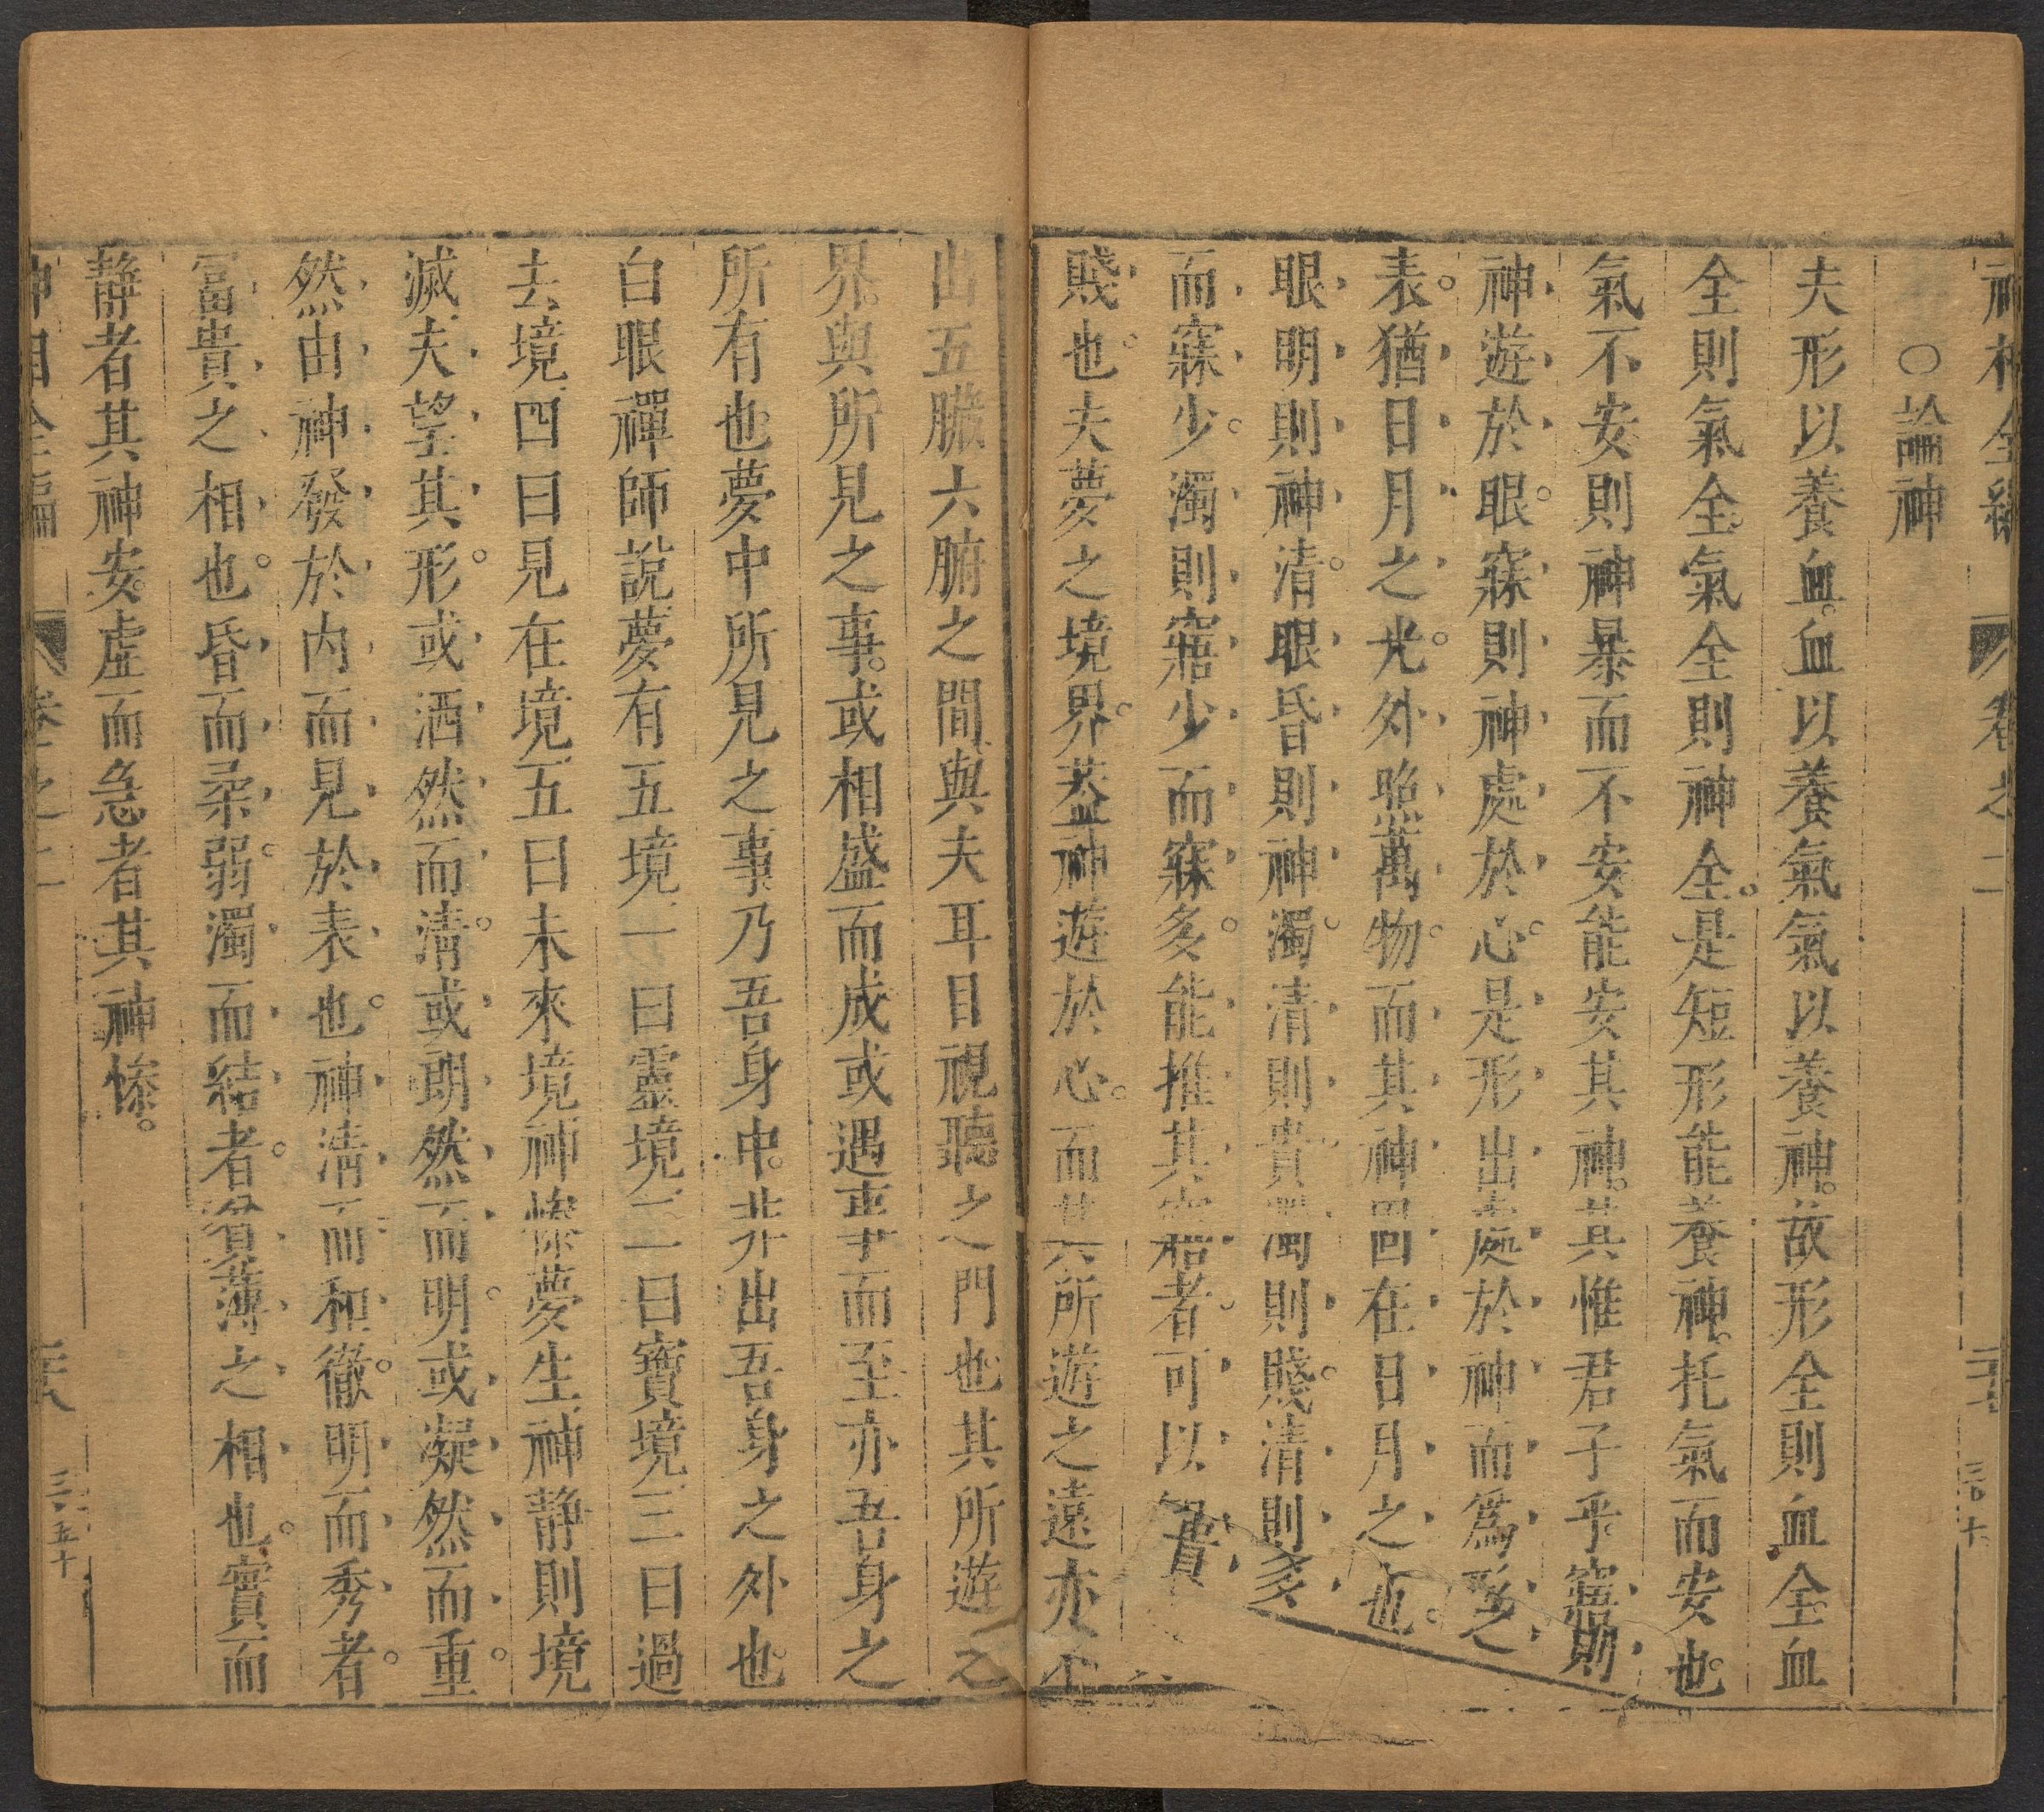 神相全編 卷之二
〇論神
夫形以養血血以養氣氣以養神故形全則血全血
全則氣全氣全則神全是短形能養神托氣而安也
氣不安則神暴而不安能安其神其惟君子乎寤則
神遊於眼寐則神處於心是形出處於神而爲形之
表猶日月之光外照萬物而其神固在日月之也
眼明則神清眼昏則神濁清則貴濁則賤清則多
而寐少濁則寤少而寐多能推其寤寐者可以知貴
賤也夫夢之境界葢神遊於心而其所遊之遠亦不
出五臟六腑之間與夫耳目視聽之門也其所遊之
界與所見之事或相盛而成或遇事而至亦吾身之
所有也夢中所見之事乃吾身中非出吾身之外也
白眼禪師説夢有五境一曰靈境二曰寶境三曰過
去境四曰見在境五曰未來境神惨夢生神靜則境
滅夫望其形或洒然而清或朗然而明或凝然而重
然由神發於内而見於表也神清而和徹明而秀者
富貴之相也昏而柔弱濁而結者貧薄之相也實而
靜者其神安虛而急者其神惨
神相全編 卷之二